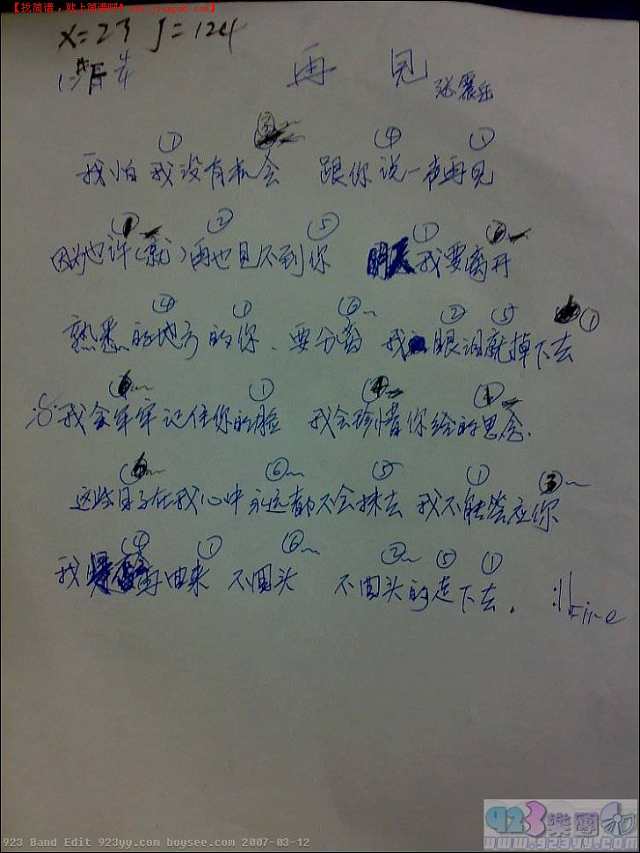 【找简谱,就上简谱网 www.jianpu8.com】
X=23 J=124
清唱 再 见 张震岳
① ③~ ④ ①
我怕我没有机会 跟你说一声再见
① ② ⑤ ① ⑥~
因为也许(就)再也见不到你 明天我要离开
④ ① ⑥~ ② ⑤ ①
熟悉的地方的你、要分离 我眼泪就掉下去
⑥~ ① ④ ①
我会牢牢记住你的脸 我会珍惜你给的思念、
⑥~ ⑥~ ⑤ ① ③~
这些日子在我心中永远都不会抹去 我不能答应你
④ ① ⑥~ ②~ ⑤ ①
我 再回来 不回头 不回头的走下去。 Fine
923 Band Edit 923yy.com boysee.com 2007-03-12
923樂團
www.923yy.com